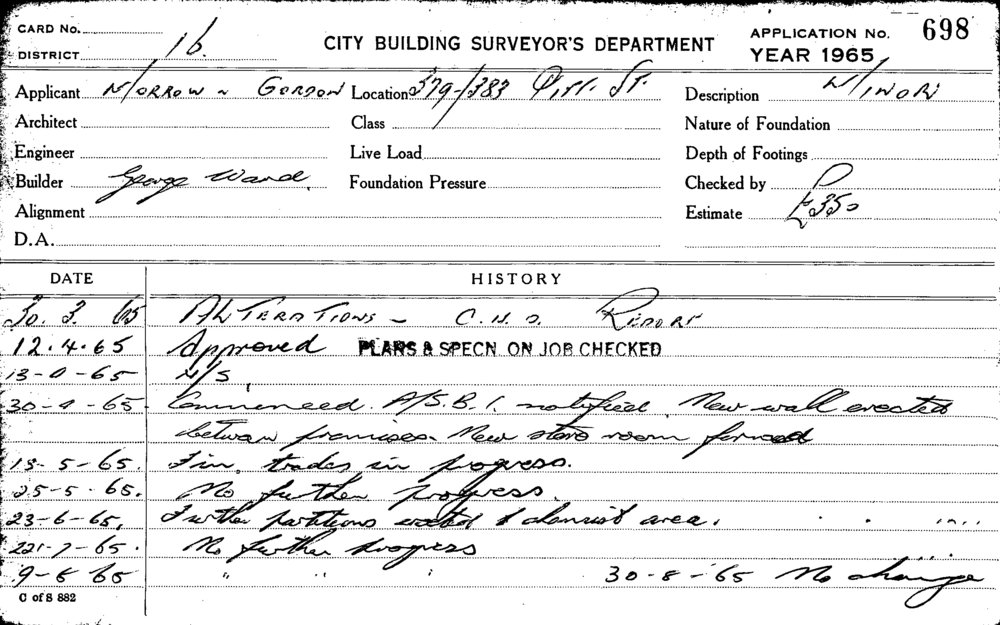 CARD No.
DISTRICT 16.
CITY BUILDING SURVEYOR'S DEPARTMENT
APPLICATION No. 698
YEAR 1965
Applicant Morrow & Gordon Location 379/383 Pitt. St. Description Minor
Architect Class Nature of Foundation
Engineer Live Load Depth of Footings
Builder George Ward. Foundation Pressure Checked by
Alignment Estimate £350
D.A.
DATE HISTORY
30. 3. 65 ALTERATIONS - Report
12.4.65 Approved PLANS & SPECN ON JOB CHECKED
N/S.
65. Commenced. A/S.B.I. notified. New wall erected
between premises. New store room formed
5-65. Fin. trades in progress.
25-5-65. No further progress.
23-6-65. Further partitions erected area.
7-65. No further progress
65 " " " 30-8-65 No change
C of S 882